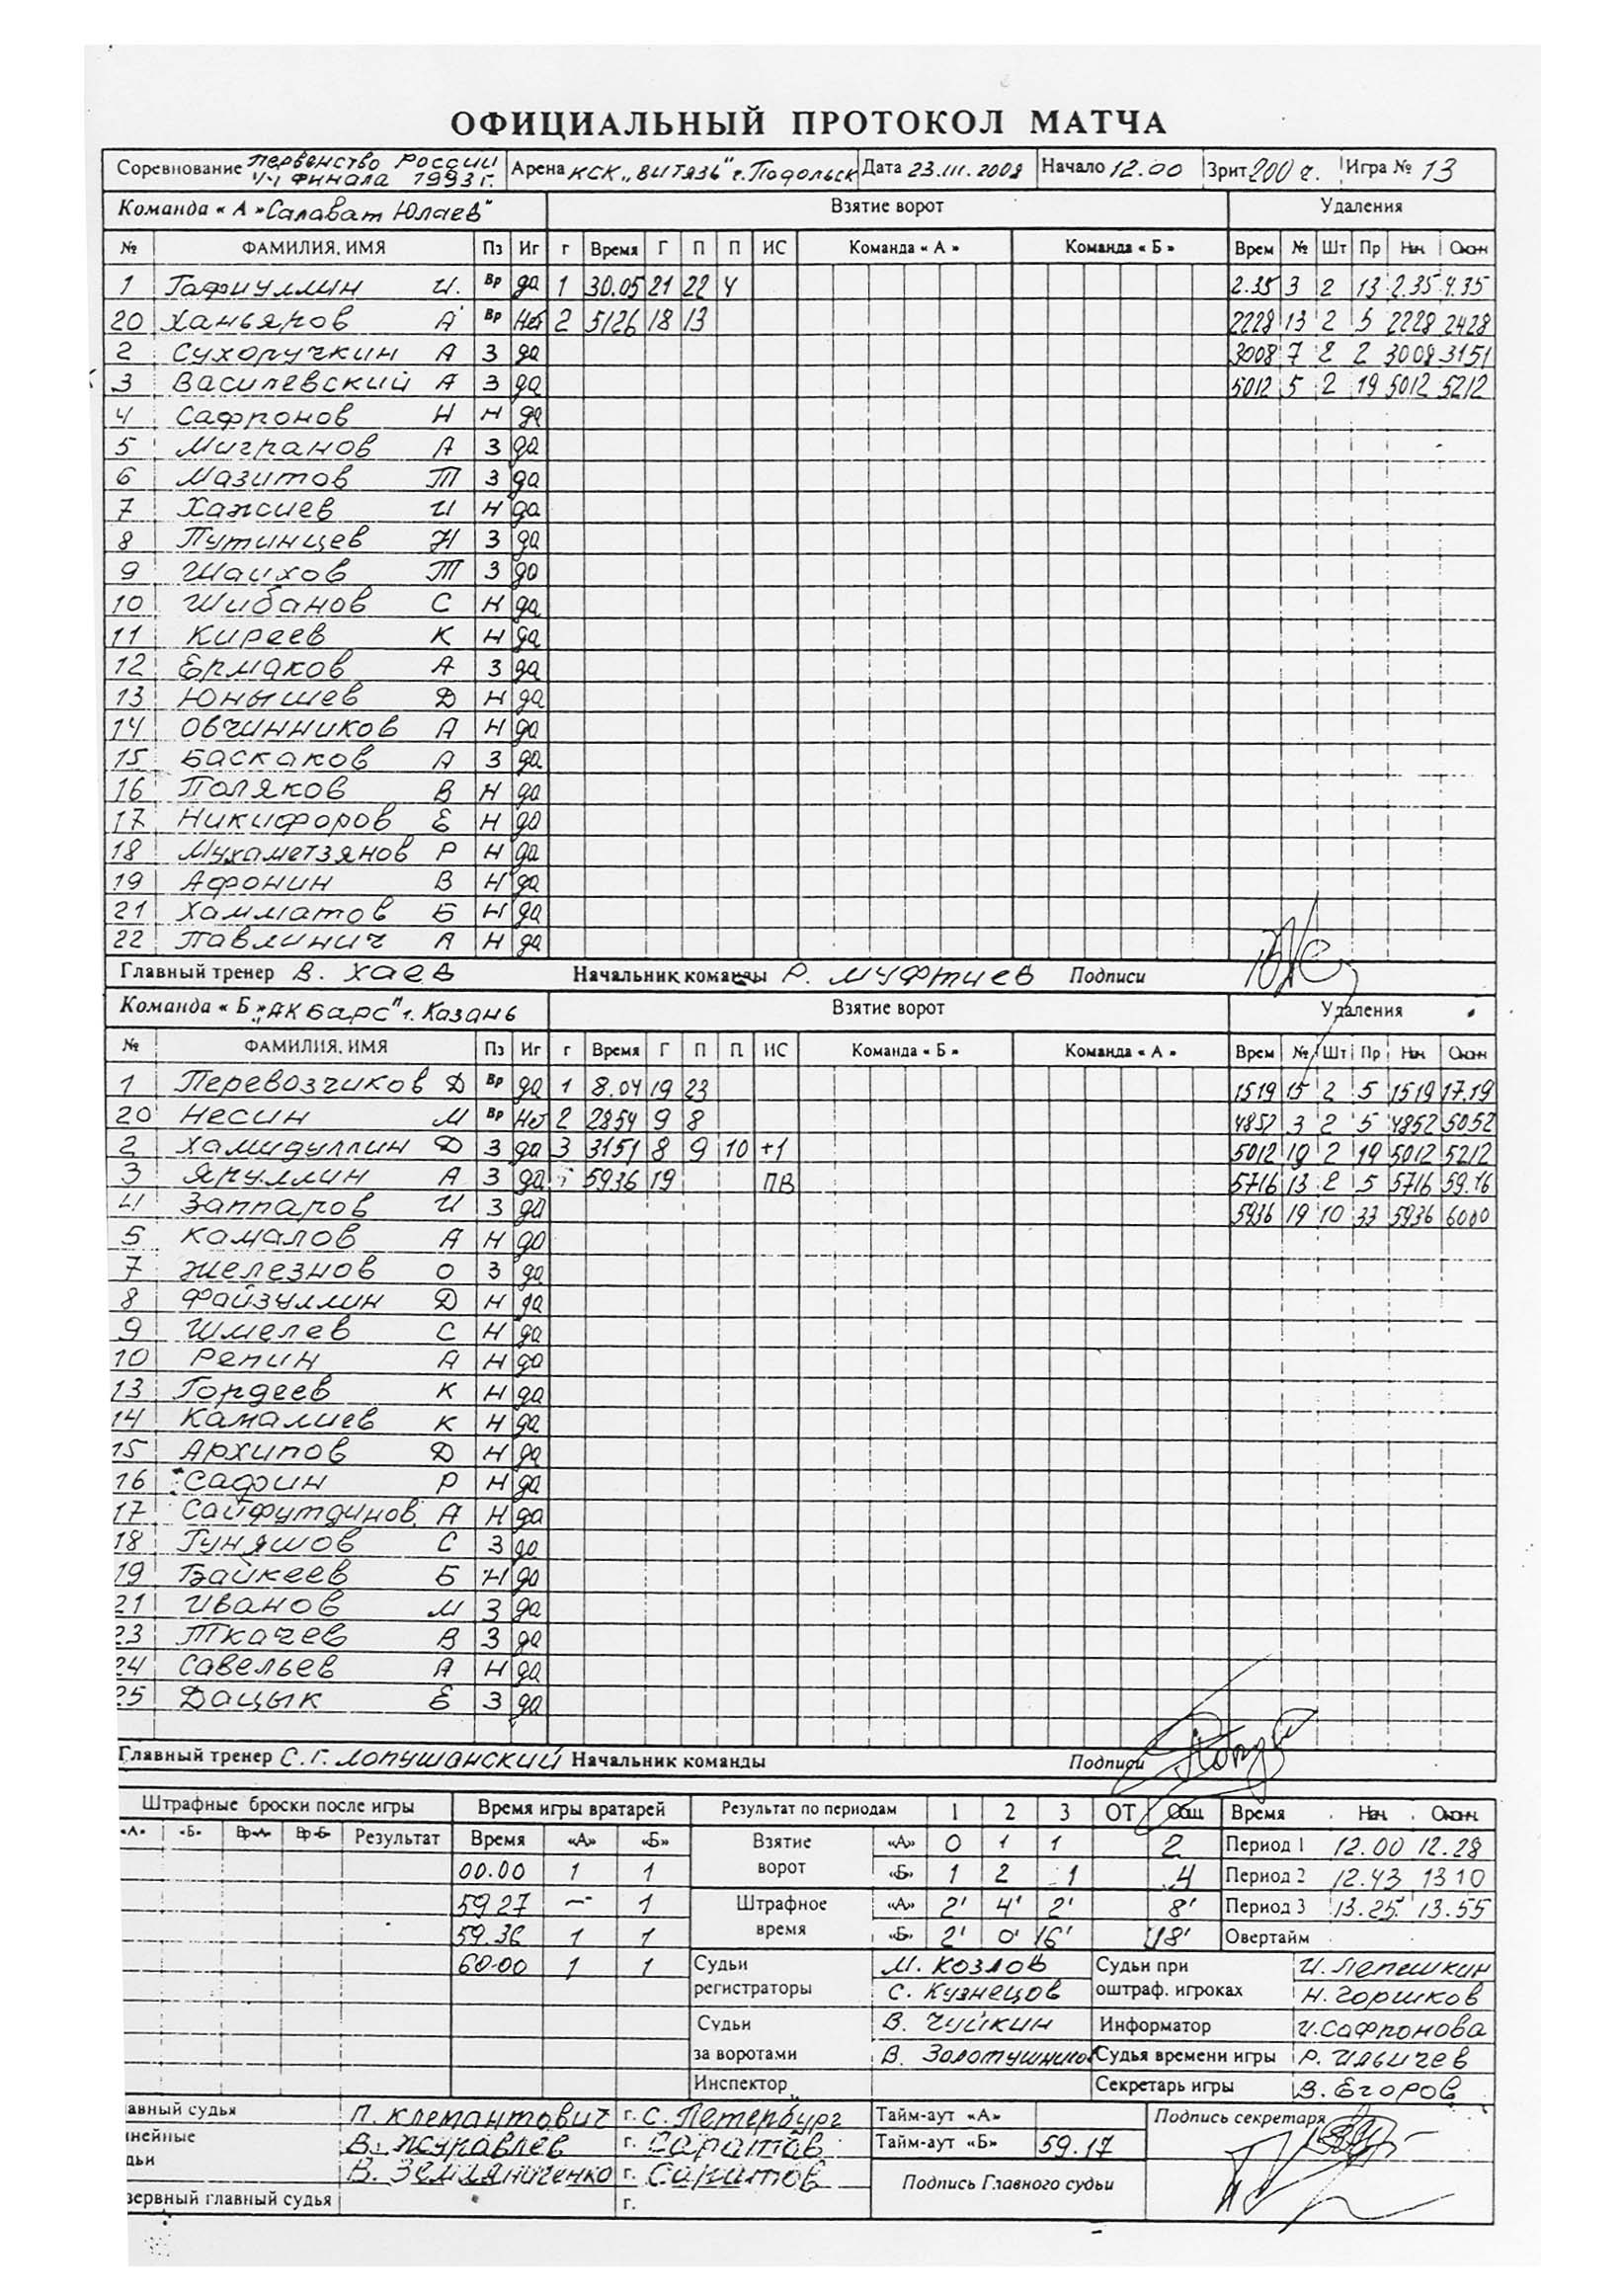 ОФИЦИАЛЬНЫЙ ПРОТОКОЛ МАТЧА
Соревнование Первенство России 1/4 финала 1993 г. Арена КСК „Витязь" г. Подольск Дата 23.III.2008 Начало 12.00 Зрит 200 ч. Игра № 13
Команда « А » Салават Юлаев" Взятие ворот Удаления
№ ФАМИЛИЯ, ИМЯ Пз Иг г Время Г П П ИС Команда « А » Команда « Б » Врем № Шт Пр Нач. Оконч
1 Гафиуллин И. Вр да 1 30.05 21 22 4 2.35 3 2 13 2.35 4.35
20 Ханьяров А Вр Нет 2 5126 18 13 2228 13 2 5 2228 2428
2 Сухоручкин А З да 3008 7 2 2 3008 3151
3 Василевский А З да 5012 5 2 19 5012 5212
4 Сафронов Н Н да
5 Мигранов А З да
6 Мазитов Т З да
7 Хажиев И Н да
8 Путинцев Н З да
9 Шаихов Т З да
10 Шибанов С Н да
11 Киреев К Н да
12 Ермаков А З да
13 Юнышев Д Н да
14 Овчинников А Н да
15 Баскаков А З да
16 Поляков В Н да
17 Никифоров Е Н да
18 Мухаметзянов Р Н да
19 Афонин В Н да
21 Хамматов Б Н да
22 Павлинич А Н да
Главный тренер В. Хаев Начальник команды Р. Муфтиев Подписи
Команда « Б » „Ак Барс" г. Казань Взятие ворот Удаления
№ ФАМИЛИЯ, ИМЯ Пз Иг г Время Г П П. ИС Команда « Б » Команда « А » Врем № Шт Пр Нач. Оконч
1 Перевозчиков Д Вр да 1 8.04 19 23 1519 15 2 5 1519 17.19
20 Несин М Вр Нет 2 2854 9 8 4852 3 2 5 4852 5052
2 Хамидуллин Ф З да 3 3151 8 9 10 +1 5012 19 2 19 5012 5212
3 Яруллин А З да 5936 19 ПВ 5716 13 2 5 5716 59.16
4 Заппаров И З да 5936 19 10 33 5936 6000
5 Камалов А Н да
7 Железнов О З да
8 Файзуллин Д Н да
9 Шмелев С Н да
10 Репин А Н да
13 Гордеев К Н да
14 Камалиев К Н да
15 Архипов Д Н да
16 Сафин Р Н да
17 Сайфутдинов А Н да
18 Гуняшов С З да
19 Байкеев Б Н да
21 Иванов М З да
23 Ткачев В З да
24 Савельев А Н да
25 Дацык Е З да
Главный тренер С. Г. Лопушанский Начальник команды Подписи
Штрафные броски после игры Время игры вратарей Результат по периодам 1 2 3 ОТ Общ Время Нач. Оконч.
«А» «Б» Вр«А» Вр«Б» Результат Время «А» «Б» Взятие ворот «А» 0 1 1 2 Период 1 12.00 12.28
00.00 1 1 «Б» 1 2 1 4 Период 2 12.43 13 10
59 27 — 1 Штрафное время «А» 2' 4' 2' 8' Период 3 13.25 13.55
59.36 1 1 «Б» 2' 0' 16' 18' Овертайм
60.00 1 1 Судьи регистраторы М. Козлов Судьи при оштраф. игроках И. Лепешкин
С. Кузнецов Н. Горшков
Судьи за воротами В. Чуйкин Информатор И. Сафронова
В. Золотушников Судья времени игры Р. Ильичев
Инспектор Секретарь игры В. Егоров
авный судья П. Клемантович г. С. Петербург Тайм-аут «А» Подпись секретаря
инейные В. Журавлев г. Саратов Тайм-аут «Б» 59.17
дьи В. Земляниченко г. Саратов Подпись Главного судьи
зервный главный судья г.